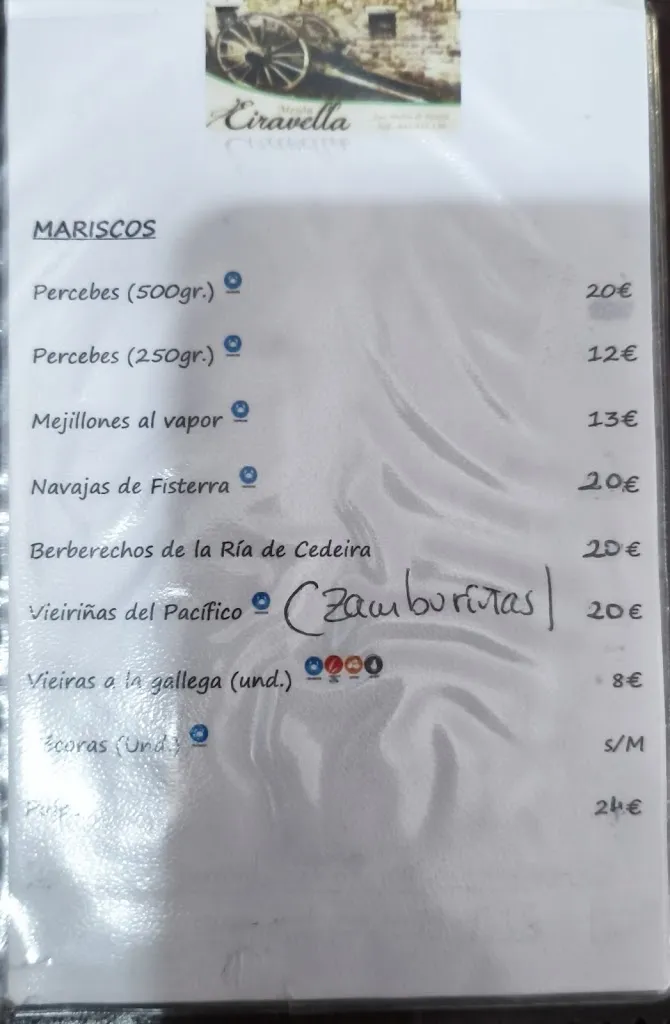 Eiravella
MARISCOS
Percebes (500gr.) 20€
Percebes (250gr.) 12€
Mejillones al vapor 13€
Navajas de Fisterra 20€
Berberechos de la Ría de Cedeira 20€
Vieiriñas del Pacífico (Zamburiñas) 20€
Vieiras a la gallega (und.) 8€
(Und.) S/M
24€